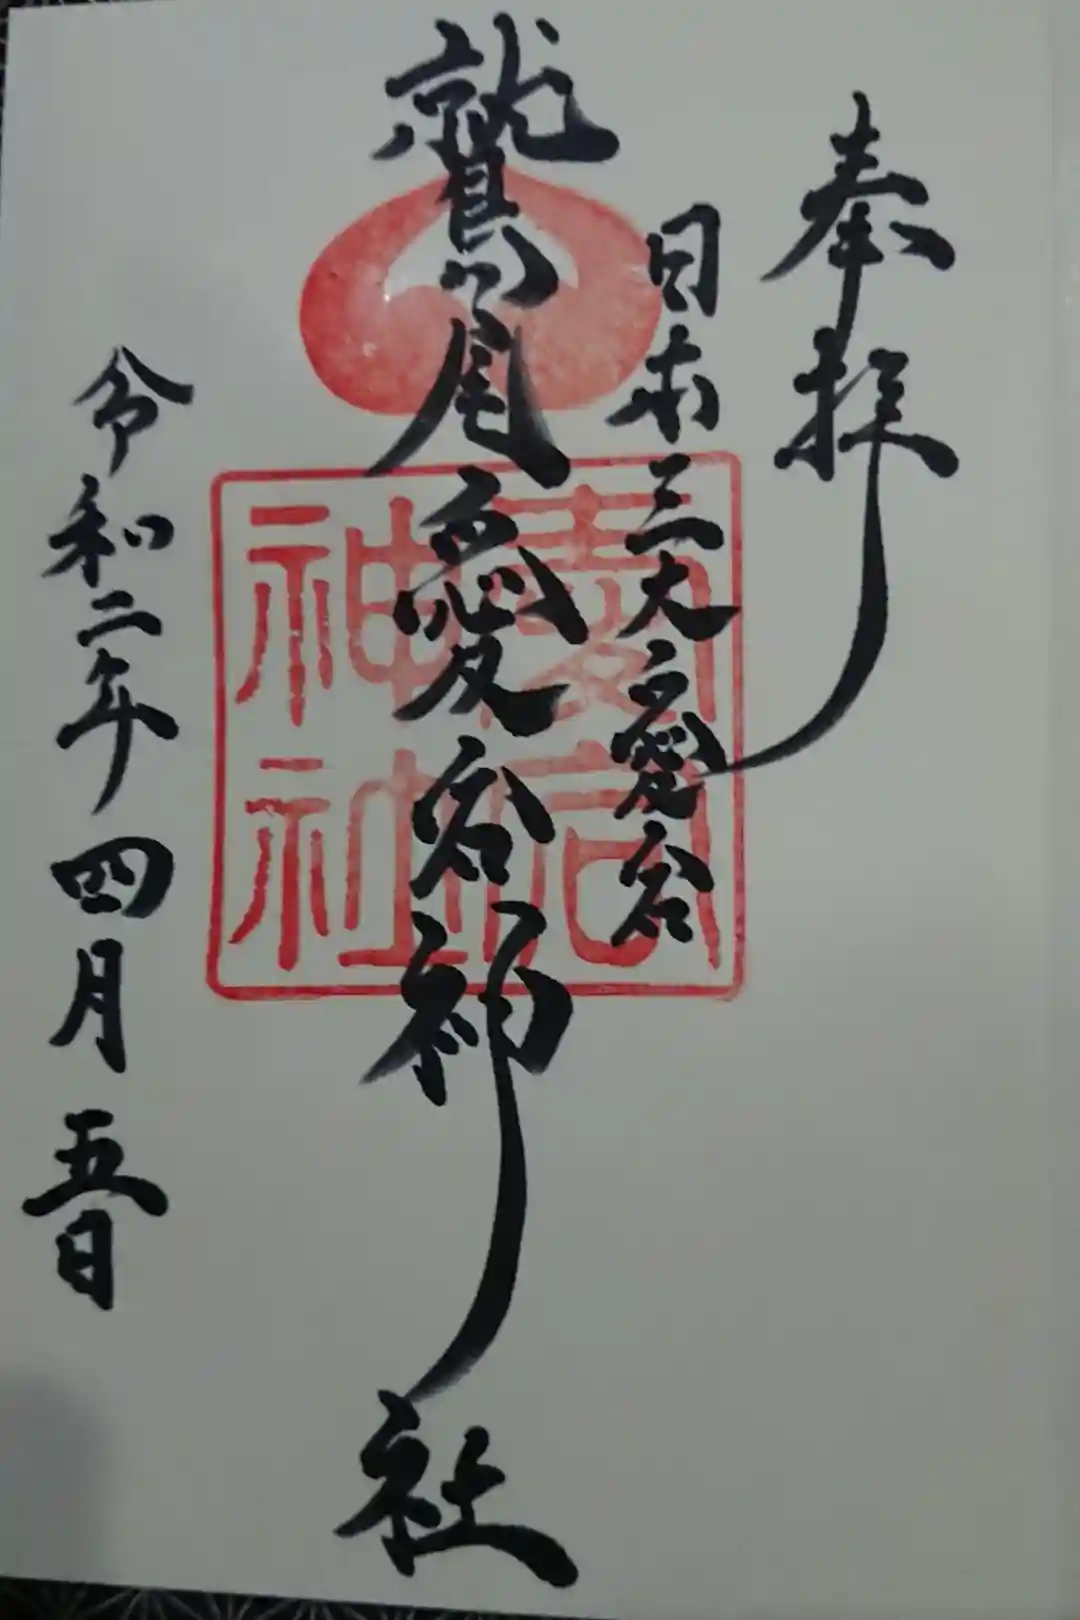 奉拝
日本三大愛宕
鷲尾愛宕神社
愛宕神社
令和二年四月五日